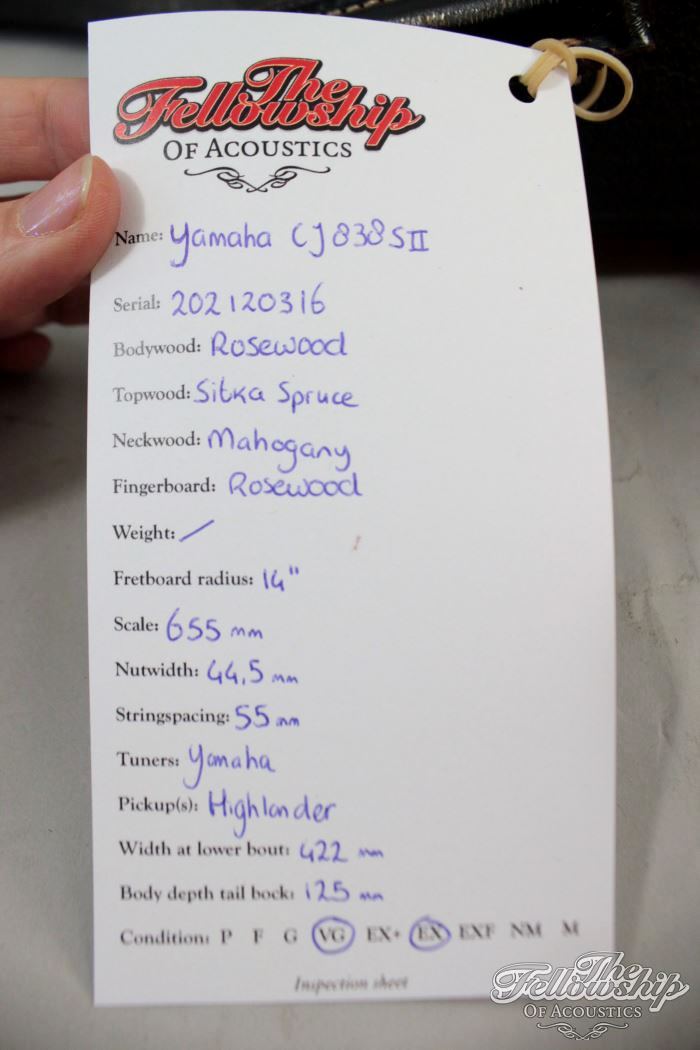 The
Fellowship
OF ACOUSTICS
Name: Yamaha CJ838SII
Serial: 202120316
Bodywood: Rosewood
Topwood: Sitka Spruce
Neckwood: Mahogany
Fingerboard: Rosewood
Weight: /
Fretboard radius: 14"
Scale: 655 mm
Nutwidth: 44,5 mm
Stringspacing: 55 mm
Tuners: Yamaha
Pickup(s): Highlander
Width at lower bout: 422 mm
Body depth tail bock: 125 mm
Condition: P F G VG EX+ EX EXF NM M
Inspection sheet
The
Fellowship
OF ACOUSTICS